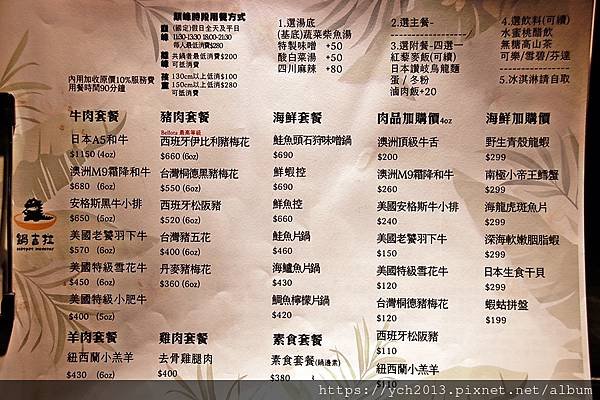 巔峰時段用餐方式
(國定)假日全天及平日
11:30-13:30 18:00-21:30
每人最低消費$280
共鍋者最低消費$200
可抵消費
130cm以上低消$100
150cm以上低消$280
可抵消費
內用加收原價10%服務費
用餐時間90分鐘
1.選湯底
(基底)蔬菜柴魚湯
特製味噌 +50
酸白菜湯 +50
四川麻辣 +80
2.選主餐-
3.選附餐-四選一
紅藜麥飯(可續)
日本讚岐烏龍麵
蛋 / 冬粉
滷肉飯+20
4.選飲料(可續)
水蜜桃醋飲
無糖高山茶
可樂/雪碧/芬達
5.冰淇淋請自取
鍋吉拉
牛肉套餐
日本A5和牛
$1150 (4oz)
澳洲M9霜降和牛
$680 (6oz)
安格斯黑牛小排
$650 (5oz)
美國老饕羽下牛
$570 (6oz)
美國特級雪花牛
$450 (6oz)
美國特級小肥牛
$400 (5oz)
羊肉套餐
紐西蘭小羔羊
$430 (6oz)
豬肉套餐
Bellota 最高等級
西班牙伊比利豬梅花
$660 (6oz)
台灣桐德黑豬梅花
$550 (6oz)
西班牙松阪豬
$520 (6oz)
台灣豬五花
$400 (6oz)
丹麥豬梅花
$360 (6oz)
雞肉套餐
去骨雞腿肉
$400
海鮮套餐
鮭魚頭石狩味噌鍋
$690
鮮蝦控
$690
鮮魚控
$660
鮭魚片鍋
$430
海鱸魚片鍋
$430
鯛魚檸檬片鍋
$420
素食套餐
素食套餐(鍋邊素)
$380
肉品加購價4oz
澳洲頂級牛舌
$200
澳洲M9霜降和牛
$260
美國安格斯牛小排
$240
美國老饕羽下牛
$150
美國特級雪花牛
$120
台灣桐德豬梅花
$120
西班牙松阪豬
$110
紐西蘭小羔羊
$110
海鮮加購價
野生青殼龍蝦
$299
南極小帝王鱈蟹
$299
海龍虎斑魚片
$299
深海軟嫩胭脂蝦
$299
日本生食干貝
$299
蝦蛄拼盤
$199
https://ych2013.pixnet.net/album